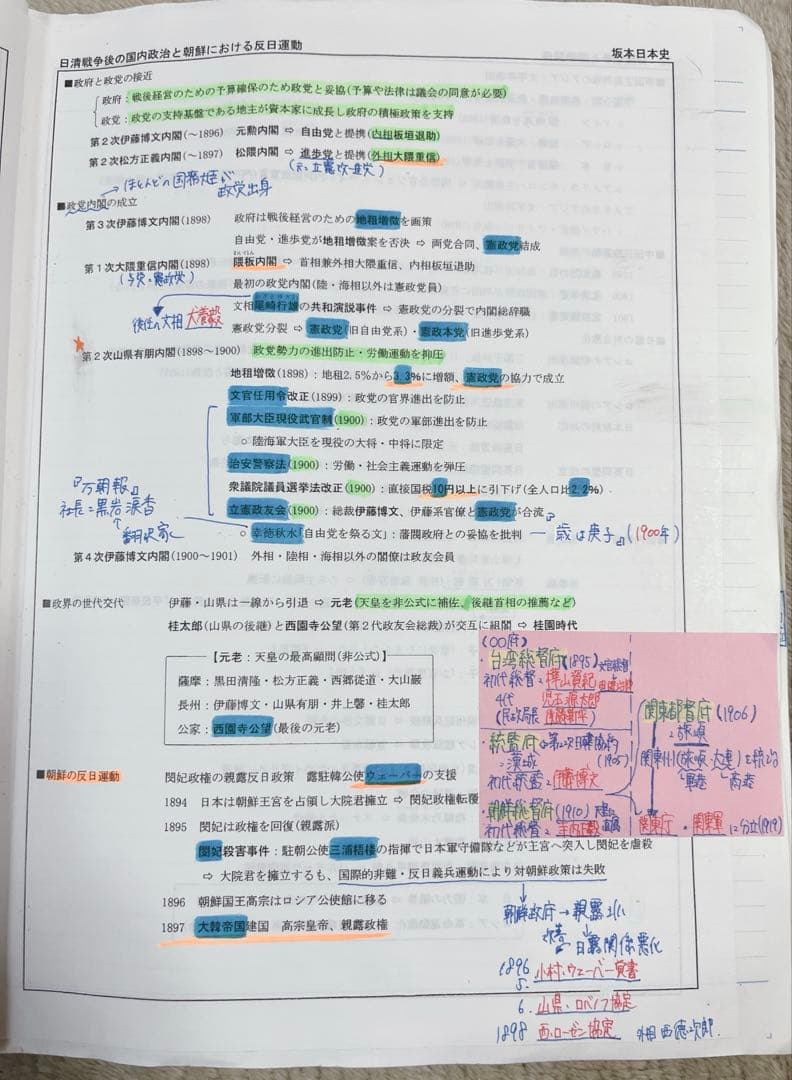 日清戦争後の国内政治と朝鮮における反日運動
坂本日本史
■政府と政党の接近
政府：戦後経営のための予算確保のため政党と妥協(予算や法律は議会の同意が必要)
政党：政党の支持基盤である地主が資本家に成長し政府の積極政策を支持
第2次伊藤博文内閣(～1896) 元勲内閣 ⇨ 自由党と提携(内相板垣退助)
第2次松方正義内閣(～1897) 松隈内閣 ⇨ 進歩党と提携(外相大隈重信)
(元立憲改進党)
→ほとんどの国務大臣が政党出身
■政党内閣の成立
第3次伊藤博文内閣(1898) 政府は戦後経営のための地租増徴を画策
自由党・進歩党が地租増徴案を否決 ⇨ 両党合同、憲政党結成
わいはん
第1次大隈重信内閣(1898) 隈板内閣 ⇨ 首相兼外相大隈重信、内相板垣退助
(与党：憲政党)
最初の政党内閣(陸・海相以外は憲政党員)
文相尾崎行雄の共和演説事件 ⇨ 憲政党の分裂で内閣総辞職
後任の文相 犬養毅
憲政党分裂 ⇨ 憲政党(旧自由党系)・憲政本党(旧進歩党系)
第2次山県有朋内閣(1898～1900) 政党勢力の進出防止・労働運動を抑圧
地租増徴(1898)：地租2.5%から3.3%に増額、憲政党の協力で成立
文官任用令改正(1899)：政党の官界進出を防止
軍部大臣現役武官制(1900)：政党の軍部進出を防止
○ 陸海軍大臣を現役の大将・中将に限定
治安警察法(1900)：労働・社会主義運動を弾圧
衆議院議員選挙法改正(1900)：直接国税10円以上に引下げ(全人口比2.2%)
立憲政友会(1900)：総裁伊藤博文、伊藤系官僚と憲政党が合流
○ 幸徳秋水「自由党を祭る文」：藩閥政府との妥協を批判 ―『歳は庚子』(1900年)
『万朝報』
社長：黒岩涙香
翻訳家
第4次伊藤博文内閣(1900～1901) 外相・陸相・海相以外の閣僚は政友会員
■政界の世代交代 伊藤・山県は一線から引退 ⇨ 元老(天皇を非公式に補佐、後継首相の推薦など)
桂太郎(山県の後継)と西園寺公望(第2代政友会総裁)が交互に組閣 ⇨ 桂園時代
【元老：天皇の最高顧問(非公式)】
薩摩：黒田清隆・松方正義・西郷従道・大山巌
長州：伊藤博文・山県有朋・井上馨・桂太郎
公家：西園寺公望(最後の元老)
(〇〇府)
・台湾総督府(1895)
初代総督：樺山資紀
4代 児玉源太郎
(民政局長 後藤新平)
・統監府 第2次日韓協約(1905)
＝漢城
初代統監：伊藤博文
・朝鮮総督府(1910)
初代総督：寺内正毅
関東都督府(1906)
：旅順
関東州(旅順・大連)を統治
軍港 商港
関東庁・関東軍に分立(1919)
■朝鮮の反日運動 閔妃政権の親露反日政策 露駐韓公使ウェーバーの支援
1894 日本は朝鮮王宮を占領し大院君擁立 ⇨ 閔妃政権転覆
1895 閔妃は政権を回復(親露派)
閔妃殺害事件：駐朝公使三浦梧楼の指揮で日本軍守備隊などが王宮へ突入し閔妃を虐殺
⇨ 大院君を擁立するも、国際的非難・反日義兵運動により対朝鮮政策は失敗
1896 朝鮮国王高宗はロシア公使館に移る
1897 大韓帝国建国 高宗皇帝、親露政権
朝鮮政府→親露化
↓
改善 日露関係悪化
1896
5. 小村・ウェーバー覚書
6. 山県・ロバノフ協定
1898 西・ローゼン協定 外相 西徳次郎